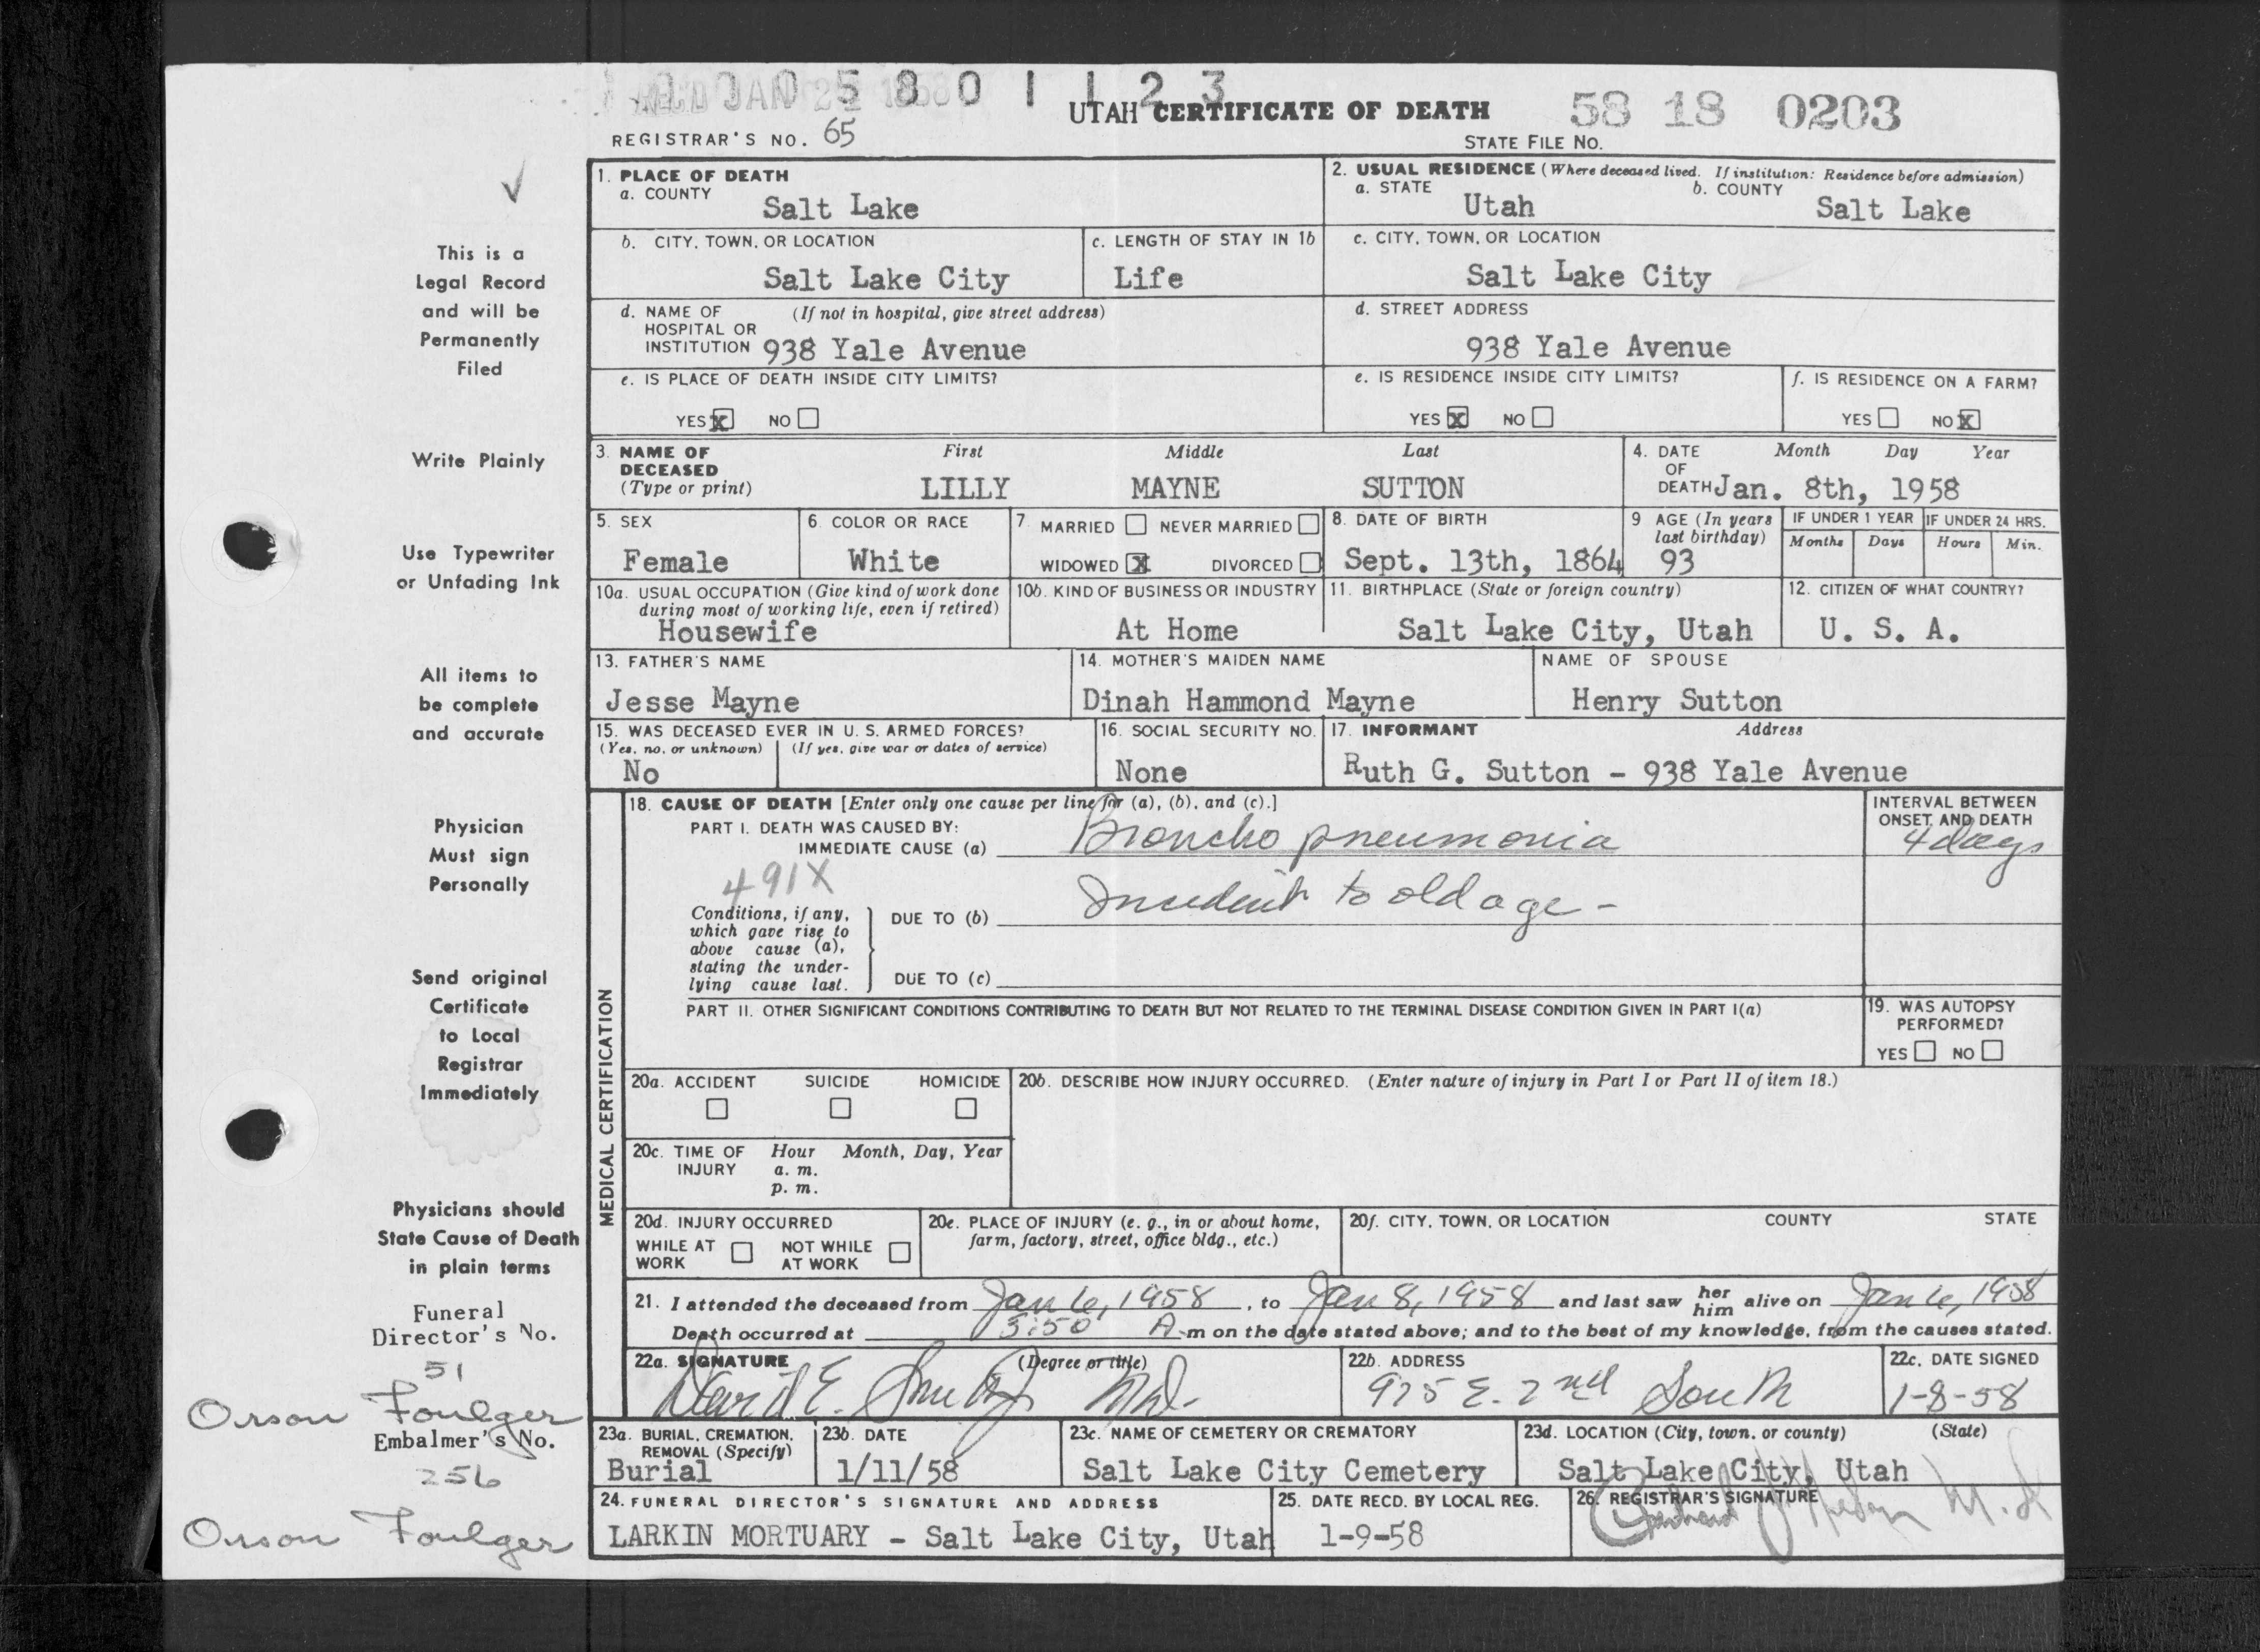 REC'D JAN 1958
1 1 0 5 8 0 1 1 2 3
UTAH CERTIFICATE OF DEATH
58 18 0203
REGISTRAR'S NO. 65
STATE FILE NO.
1. PLACE OF DEATH
a. COUNTY
Salt Lake
2. USUAL RESIDENCE (Where deceased lived. If institution: Residence before admission)
a. STATE
Utah
b. COUNTY
Salt Lake
b. CITY, TOWN, OR LOCATION
Salt Lake City
c. LENGTH OF STAY IN 1b
Life
c. CITY, TOWN, OR LOCATION
Salt Lake City
d. NAME OF (If not in hospital, give street address)
HOSPITAL OR
INSTITUTION 938 Yale Avenue
d. STREET ADDRESS
938 Yale Avenue
e. IS PLACE OF DEATH INSIDE CITY LIMITS?
YES X NO
e. IS RESIDENCE INSIDE CITY LIMITS?
YES X NO
f. IS RESIDENCE ON A FARM?
YES NO X
3. NAME OF DECEASED (Type or print)
First Middle Last
LILLY MAYNE SUTTON
4. DATE OF DEATH
Month Day Year
Jan. 8th, 1958
5. SEX
Female
6. COLOR OR RACE
White
7. MARRIED NEVER MARRIED
WIDOWED X DIVORCED
8. DATE OF BIRTH
Sept. 13th, 1864
9 AGE (In years last birthday)
93
IF UNDER 1 YEAR
Months Days
IF UNDER 24 HRS.
Hours Min.
10a. USUAL OCCUPATION (Give kind of work done
during most of working life, even if retired)
Housewife
10b. KIND OF BUSINESS OR INDUSTRY
At Home
11. BIRTHPLACE (State or foreign country)
Salt Lake City, Utah
12. CITIZEN OF WHAT COUNTRY?
U. S. A.
13. FATHER'S NAME
Jesse Mayne
14. MOTHER'S MAIDEN NAME
Dinah Hammond Mayne
NAME OF SPOUSE
Henry Sutton
15. WAS DECEASED EVER IN U. S. ARMED FORCES?
(Yes, no, or unknown) (If yes, give war or dates of service)
No
16. SOCIAL SECURITY NO.
None
17. INFORMANT Address
Ruth G. Sutton - 938 Yale Avenue
MEDICAL CERTIFICATION
18. CAUSE OF DEATH [Enter only one cause per line for (a), (b), and (c).]
PART I. DEATH WAS CAUSED BY:
IMMEDIATE CAUSE (a) Broncho pneumonia
INTERVAL BETWEEN
ONSET AND DEATH
4 days
491X
Conditions, if any,
which gave rise to
above cause (a),
stating the under-
lying cause last.
DUE TO (b) Incident to old age -
DUE TO (c)
PART II. OTHER SIGNIFICANT CONDITIONS CONTRIBUTING TO DEATH BUT NOT RELATED TO THE TERMINAL DISEASE CONDITION GIVEN IN PART I(a)
19. WAS AUTOPSY
PERFORMED?
YES NO
20a. ACCIDENT SUICIDE HOMICIDE
20b. DESCRIBE HOW INJURY OCCURRED. (Enter nature of injury in Part I or Part II of item 18.)
20c. TIME OF INJURY
Hour Month, Day, Year
a. m.
p. m.
20d. INJURY OCCURRED
WHILE AT WORK NOT WHILE AT WORK
20e. PLACE OF INJURY (e. g., in or about home,
farm, factory, street, office bldg., etc.)
20f. CITY, TOWN, OR LOCATION COUNTY STATE
21. I attended the deceased from Jan 6, 1958, to Jan 8, 1958 and last saw her him alive on Jan 6, 1958
Death occurred at 3:50 A m on the date stated above; and to the best of my knowledge, from the causes stated.
22a. SIGNATURE (Degree or title)
David E. Smith M.D.
22b. ADDRESS
925 E. 2nd South
22c. DATE SIGNED
1-8-58
23a. BURIAL, CREMATION,
REMOVAL (Specify)
Burial
23b. DATE
1/11/58
23c. NAME OF CEMETERY OR CREMATORY
Salt Lake City Cemetery
23d. LOCATION (City, town, or county) (State)
Salt Lake City, Utah
24. FUNERAL DIRECTOR'S SIGNATURE AND ADDRESS
LARKIN MORTUARY - Salt Lake City, Utah
25. DATE RECD. BY LOCAL REG.
1-9-58
26. REGISTRAR'S SIGNATURE
This is a
Legal Record
and will be
Permanently
Filed
Write Plainly
Use Typewriter
or Unfading Ink
All items to
be complete
and accurate
Physician
Must sign
Personally
Send original
Certificate
to Local
Registrar
Immediately
Physicians should
State Cause of Death
in plain terms
Funeral
Director's No.
51
Orson Foulger
Embalmer's No.
256
Orson Foulger